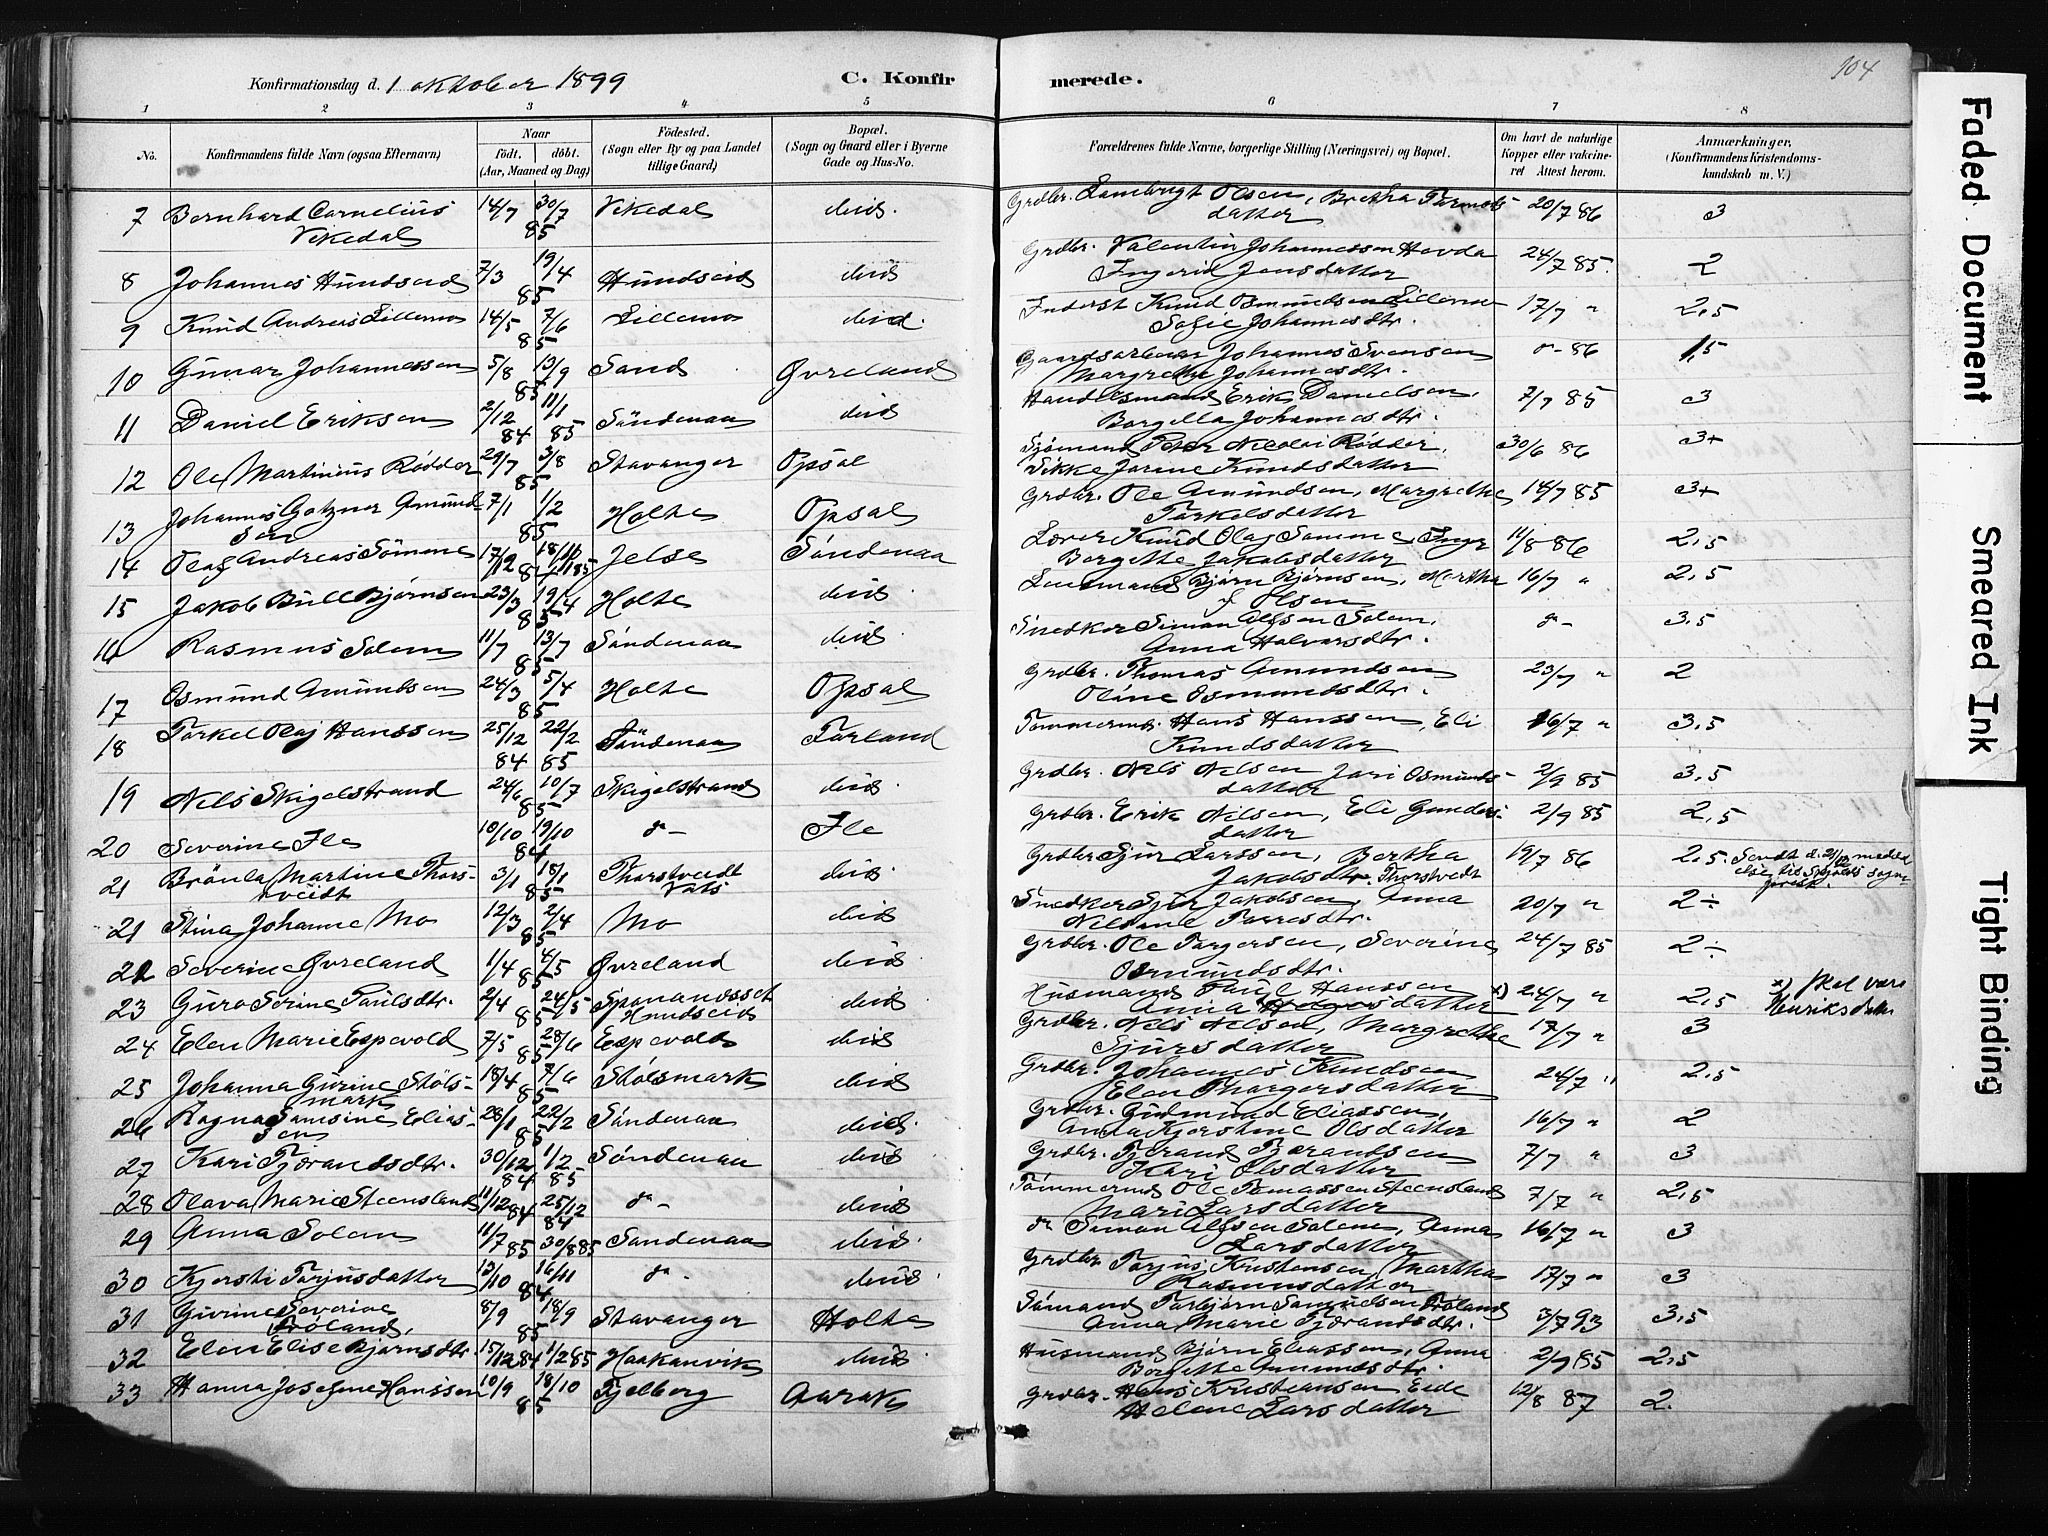 Konfirmationsdag d. 1 oktober 1899 C. Konfirmerede. 104
1 2 3 4 5 6 7 8
No. Konfirmandens fulde Navn (ogsaa Efternavn) Naar født. døbt. (Aar, Maaned og Dag) Fødested. (Sogn eller By og paa Landet tillige Gaard) Bopæl. (Sogn og Gaard eller i Byerne Gade og Hus-No. Forældrenes fulde Navne, borgerlige Stilling (Næringsvei) og Bopæl. Om havt de naturlige Kopper eller vakcineret Attest herom. Anmærkninger, (Konfirmandens Kristendomskundskab m. V.)
7 Bernhard Cornelius Vikedal 14/7 30/7 85 Vikedal ibid. Grdbr. Lambregt Olsen, Bertha Tormodsdatter 20/7 86 3
8 Johannes Hundseid 7/3 19/4 85 Hundseid ibid Grdbr. Valentin Johannessen Hovda Ingerid Jensdatter 24/7 85. 2
9 Knud Andreas Lillemo 14/5 7/6 85 Lillemo ibid. Inderst Knud Osmundsen Lillemo Sofie Johannesdtr. 17/7 " 2,5
10 Gunar Johannessen 5/8 13/9 85 Sand Øvreland Gaardsarbeider Johannes Svensen Margrethe Johannesdtr. - 86 1,5
11 Daniel Eriksen 2/12 84 11/1 85 Søndenaa ibid Handelsmand Erik Danielsen, Borgilla Johannesdtr. 7/7 85 3
12 Ole Martinius Rødder 29/7 3/8 85 Stavanger Opsal Sjømand Peter Nicolai Rødder, Sikke Jorine Knudsdatter 30/6 86 3+
13 Johannes Gotzner Amundsen 7/1 1/2 85 Holte Opsal Grdbr. Ole Amundsen, Margrethe Torkelsdatter 14/7 85 3+
14 Olaf Andreas Sømme 17/12 84 18/1 85 Jelse Søndenaa Knud Olaj Sømme Inger Borgitte Jakobsdatter 11/8 86 2,5
15 Jakob Bull Bjørnsen 23/3 19/4 85 Holte ibid Lensmand Bjørn Bjørnsen, Martha f. Olsen 16/7 " 2,5
16 Rasmus Solem 11/7 13/7 85 Søndenaa ibid. Snedker Simon Alfsen Solem, Anna Halvorsdtr. do - 3,5
17 Osmund Amundsen 24/3 5/4 85 Holte Opsal Grdbr. Thomas Amundsen Oline Osmundsdtr. 23/7 " 2
18 Torkel Olaj Hanssen 25/12 84 22/2 85 Søndenaa Førland Tømmermd. Hans Hanssen, Eli Knudsdatter 16/7 " 3,5
19 Nils Skigelstrand 24/6 10/7 85 Skigelstrand ibid. Grdbr. Nils Nilsen Jori Osmundsdatter 2/9 85 3,5
20 Severine Ile 10/10 19/10 84 do - Ile Grdbr. Erik Nilsen, Eli Gundersdatter 2/9 85 2,5
21 Brønla Martine Thorstveidt 3/1 18/1 85 Thorstvedt Vats ibid. Grdbr Sjur Larssen, Bertha Jakobsdtr. Thorstvedt 19/7 86 2,5. Sendt d. 21/12 meddelelse til Skjolds sognprest.
21 Stina Johanne Mo 12/3 2/4 85 Mo ibid Snedker Sjur Jakobsen, Anna Nilsine Torresdtr. 20/7 " 2÷
22 Severine Øvreland 1/4 4/5 85 Øvreland ibid Grdbr. Ole Torgersen, Severine Osmundsdtr. 24/7 85 2÷
23 Guro Serine Paulsdtr. 2/4 24/5 85 Hundseid ibid Husmand Paul Hanssen Anna datter x) 24/7 " 2,5 x) skal være Henriksdatter
24 Elen Marie Espevold 7/5 28/6 85 Espevold ibid Grdbr. Nils Nilsen, Margrethe Sjursdatter 17/7 " 3
25 Johanna Gurine Stølsmark 18/4 7/6 85 Stølsmark ibid Grdbr. Johannes Knudsen Elen Thorgersdatter 24/7 " 2,5
26 Ragna Samsine Eliassen 28/1 22/2 85 Søndenaa ibid. Grdbr. Gudmund Eliassen, Anna Kjerstine Olsdatter 16/7 " 2
27 Kari Tjørandsdtr. 30/12 84 1/2 85 Søndenaa ibid Grdbr. Tjørand Tjørandsen Kari Olsdatter 7/7 " 3
28 Olava Marie Steensland 11/12 84 25/12 84 do - ibid Tømmermd Ole Tomassen Steensland Mari Larsdatter 7/7 " 2,5
29 Anna Solem 11/7 85 30/8 85 Søndenaa ibid. do Simon Alfsen Solem, Anna Larsdatter 16/7 " 3
30 Kjersti Torjusdatter 13/10 16/11 84 do - ibid. Grdbr Torjus Kristensen, Martha Rasmusdatter 17/7 " 3
31 Gurine Severine Frøland, 8/9 18/9 85 Stavanger Holte Sømand Torbjørn Samuelsen Frøland Anna Marie Tjørandsdtr. 3/7 93 3,5
32 Elen Elise Bjørnsdtr. 15/12 84 1/2 85 Haakanvik ibid. Husmand Bjørn Eliassen, Anna Borgitte Amundsdtr. 2/9 85 2,5
33 Hanna Josefine Hanssen 10/9 18/10 85 Fjelberg Aarak Grdbr. Hans Kristiansen Eide Helene Larsdatter 12/8 87 2.
Faded Document
Smeared Ink
Tight Binding